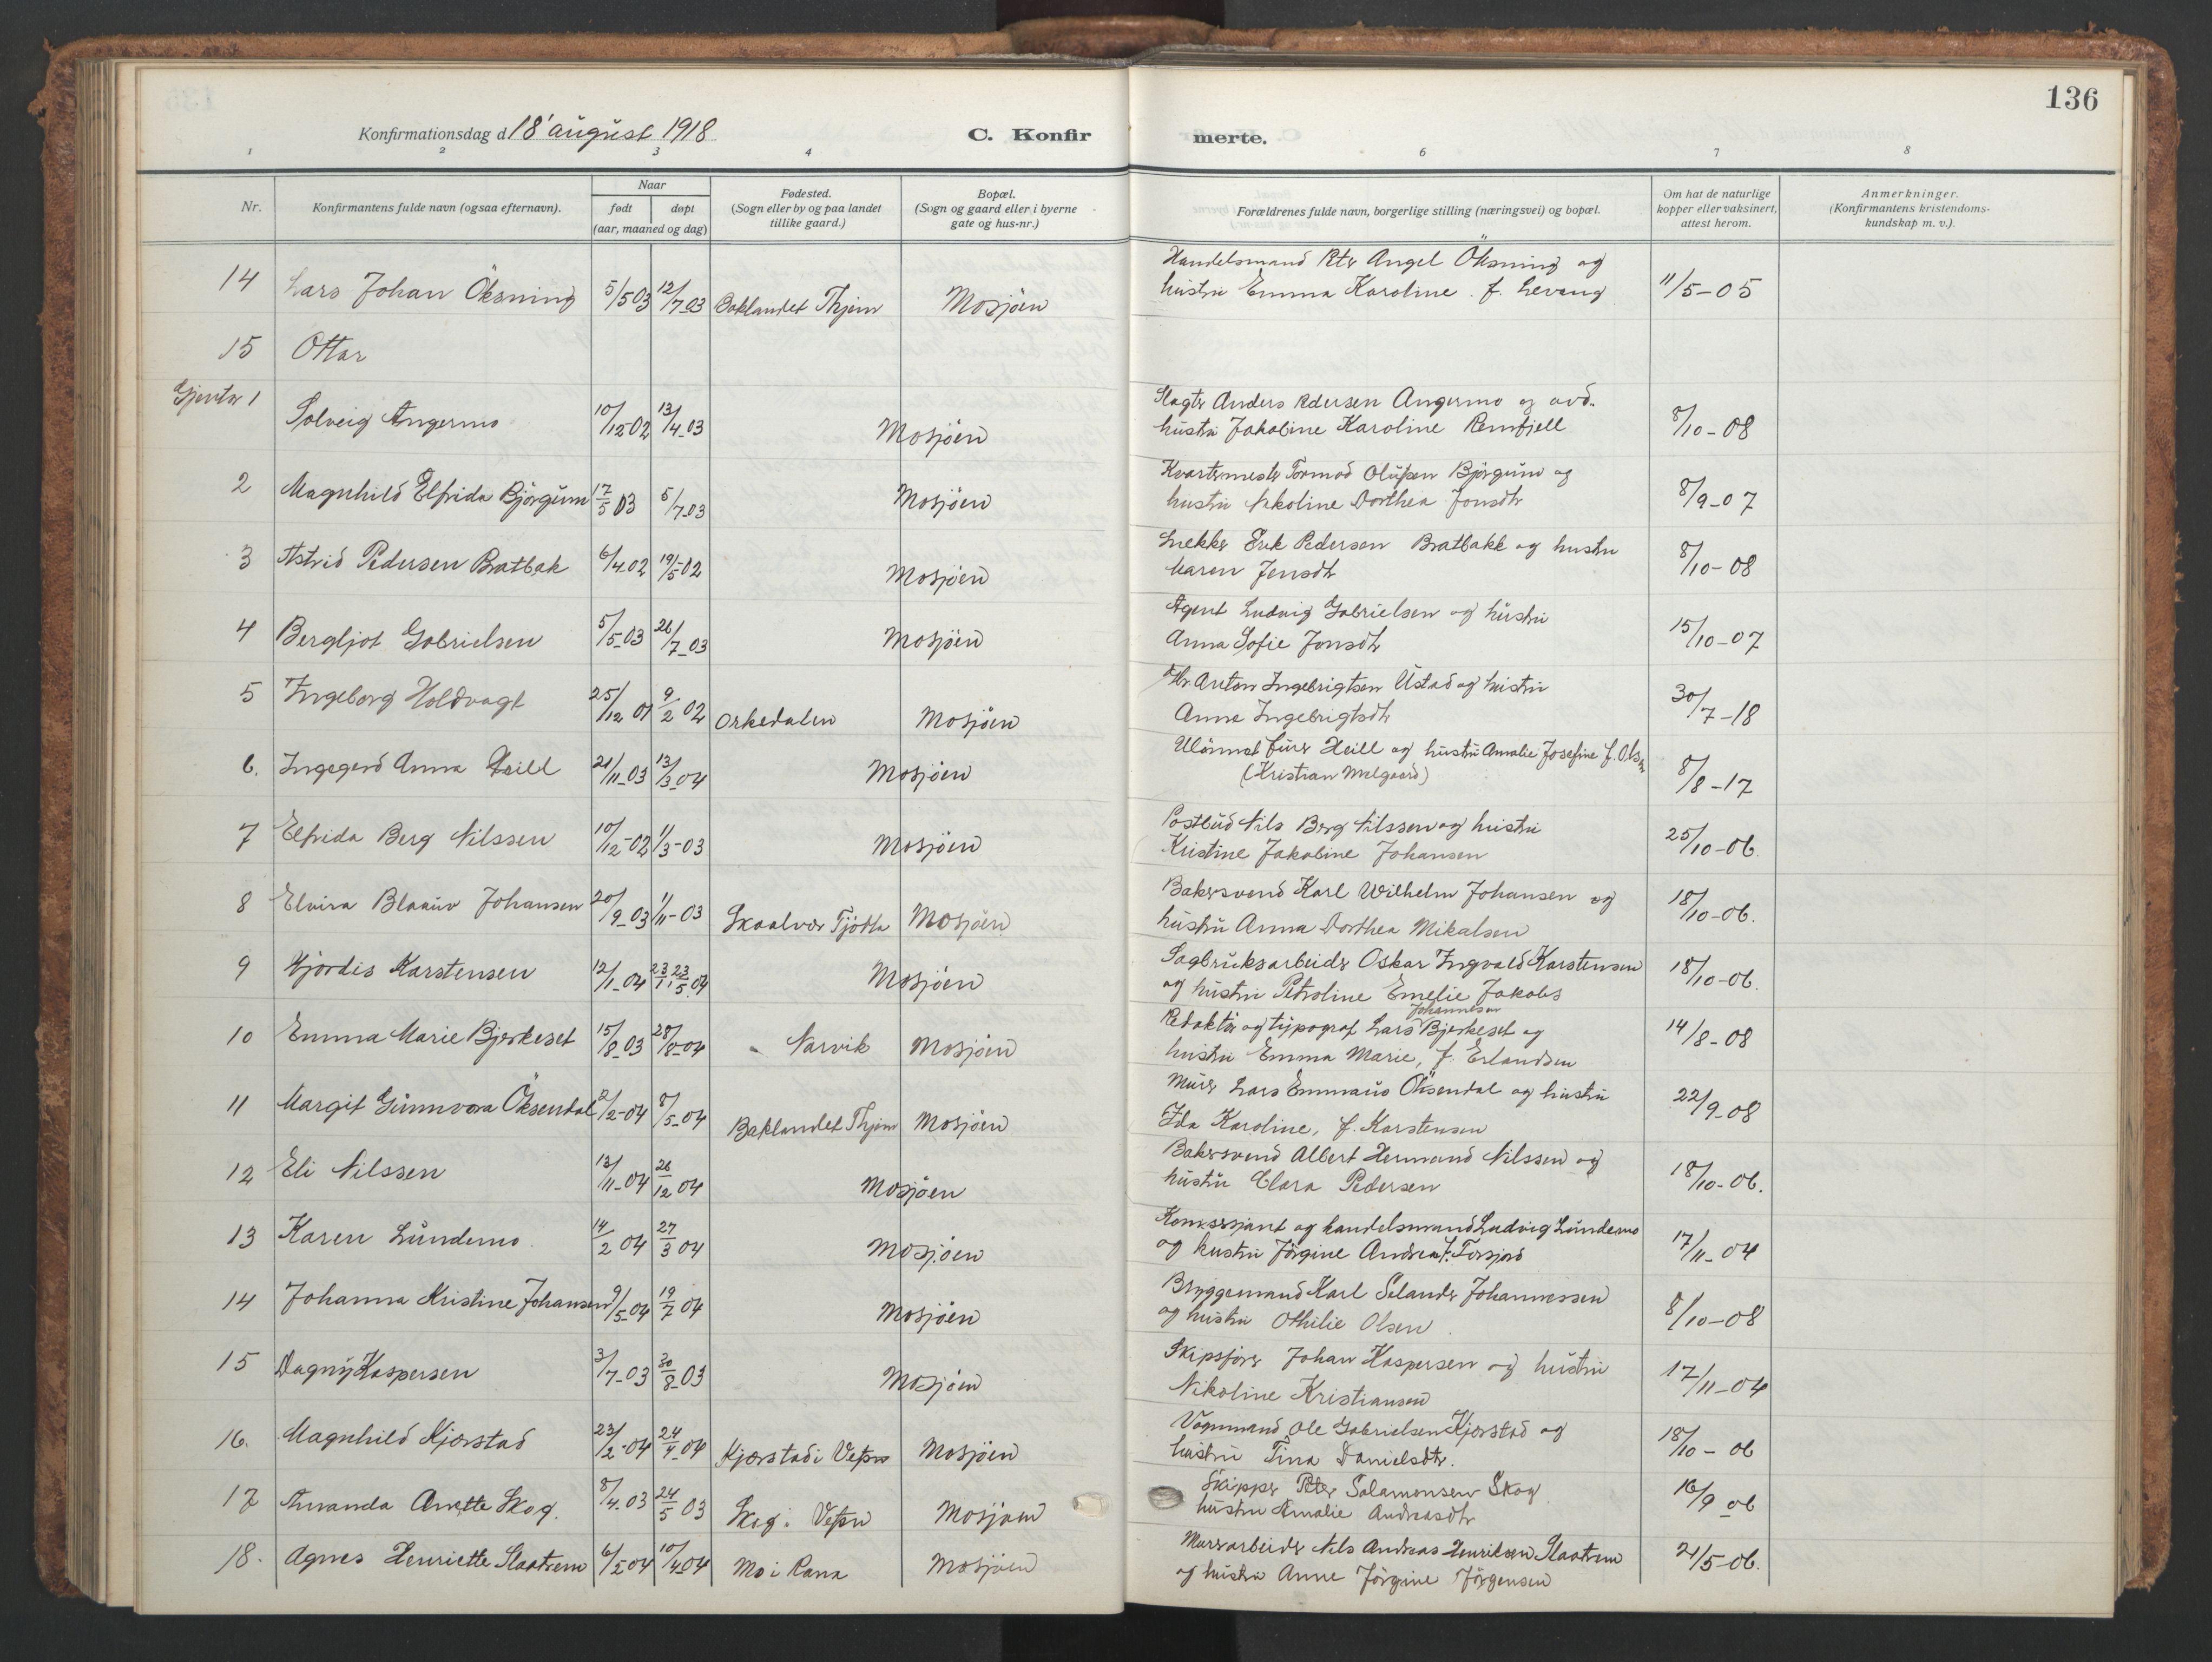 136
Konfirmationsdag d. 18' august 1918
C. Konfir
merte.
1 2 3 4 6 7 8
Nr.
Konfirmantens fulde navn (ogsaa efternavn).
Naar
født døpt
(aar, maaned og dag)
Fødested.
(Sogn eller by og paa landet
tillike gaard.)
Bopæl.
(Sogn og gaard eller i byerne
gate og hus-nr.)
Forældrenes fulde navn, borgerlige stilling (næringsvei) og bopæl.
Om hat de naturlige
kopper eller vaksinert,
attest herom.
Anmerkninger.
(Konfirmantens kristendoms-
kundskap m. v.).
Handelsmand Angel Öksning og
14 Lars Johan Öksning 5/5 03 12/7 03 Baklandet Thjem Mosjöen hustru Emma Karoline f. Levang 11/5-05
15 Ottar
Gjenter 1 Slagter Anders Pedersen Angermo og avd.
Solveig Angermo 10/12 02 13/4 03 Mosjöen hustru Jakobine Karoline Remfjell 8/10-08
Kvartermester Tormod Olufsen Björgum og
2 Magnhild Elfrida Björgum 17/5 03 5/7 03 Mosjöen hustru Nikoline Dorthea Jonsdtr 8/9-07
Erik Pedersen Bratbakk og hustru
3 Astrid Pedersen Bratbak 6/4 02 19/5-02 Mosjöen Maren Jensdtr 8/10-08
Agent Ludvig Gabrielsen og hustru
4 Bergljot Gabrielsen 5/5-03 26/7-03 Mosjöen Anna Sofie Jonsdtr 15/10-07
Anton Ingebrigtsen Ustad og hustru
5 Ingeborg Holdvagt 25/12 01 9/2 02 Orkedalen Mosjöen Anne Ingebrigtsdtr 30/7-18
Heill og hustru Amalie Josefine f. Olsen
6. Ingegerd Anna Heill 21/11-03 13/3-04 Mosjöen (Kristian Melgaard) 8/8-17
Postbud Nils Berg Nilssen og hustru
7 Elfrida Berg Nilssen 10/12-02 1/3-03 Mosjöen Kristine Jakobine Johansen 25/10-06.
Bakersvend Karl Wilhelm Johansen og
8 Elvira Blaauv Johansen 20/9-03 1/11-03 Skaalvær Tjötta Mosjöen hustru Anna Dorthea Mikalsen 18/10-06.
Sagbruksarbeider Oskar Ingvald Karstensen
9 Hjördis Karstensen 12/1-04 23/1, 23/5 04 Mosjöen og hustru Petroline Emelie Jakobs 18/10-06.
Johannesen
Redaktör og typograf Lars Bjerkeset og
10 Emma Marie Bjerkeset 15/8-03 28/8-04 Narvik Mosjöen hustru Emma Marie, f. Erlandsen 14/8-08
Murer Lars Emmaus Öksendal og hustru
11 Margit Gunnvora Öksendal 2/2-04 8/5-04 Baklandet Thjem Mosjöen Ida Karoline, f. Karstensen 22/9-08
Bakersvend Albert Hermand Nilssen og
12 Eli Nilssen 13/11-04 26/12 04 Mosjöen hustru Clara Pedersen 18/10-06.
og handelsmand Ludvig Lundemo
13 Karen Lundemo 14/2 04 27/3 04 Mosjöen og hustru Jörgine Andrea f. Forsjord 17/11-04
Bryggemand Karl Selander Johannessen
14 Johanna Kristine Johansen 9/5-04 19/7 04 Mosjöen og hustru Othilie Olsen 8/10-08
Skipsförer Johan Kaspersen og hustru
15 Dagny Kaspersen 3/7-03 30/8-03 Mosjöen Nikoline Kristiansen 17/11-04
Vognmand Ole Gabrielsen Kjærstad og
16. Magnhild Kjærstad 23/2-04 24/4 04 Kjærstad i Vefsn Mosjöen hustru Tina Danielsdtr. 18/10-06
Skipper Peter Salamonsen Skog
17 Amanda Anette Skog. 8/4-03 24/5 03 Skog i Vefsn Mosjöen hustru Amalie Andreasdtr 16/9 06
Murerarbeider Nils Andreas Henriksen Slaatrem
18. Agnes Henriette Slaatrem 6/2 04 10/4 04 Mo i Rana Mosjöen og hustru Anne Jörgine Jörgensen 21/5-06.